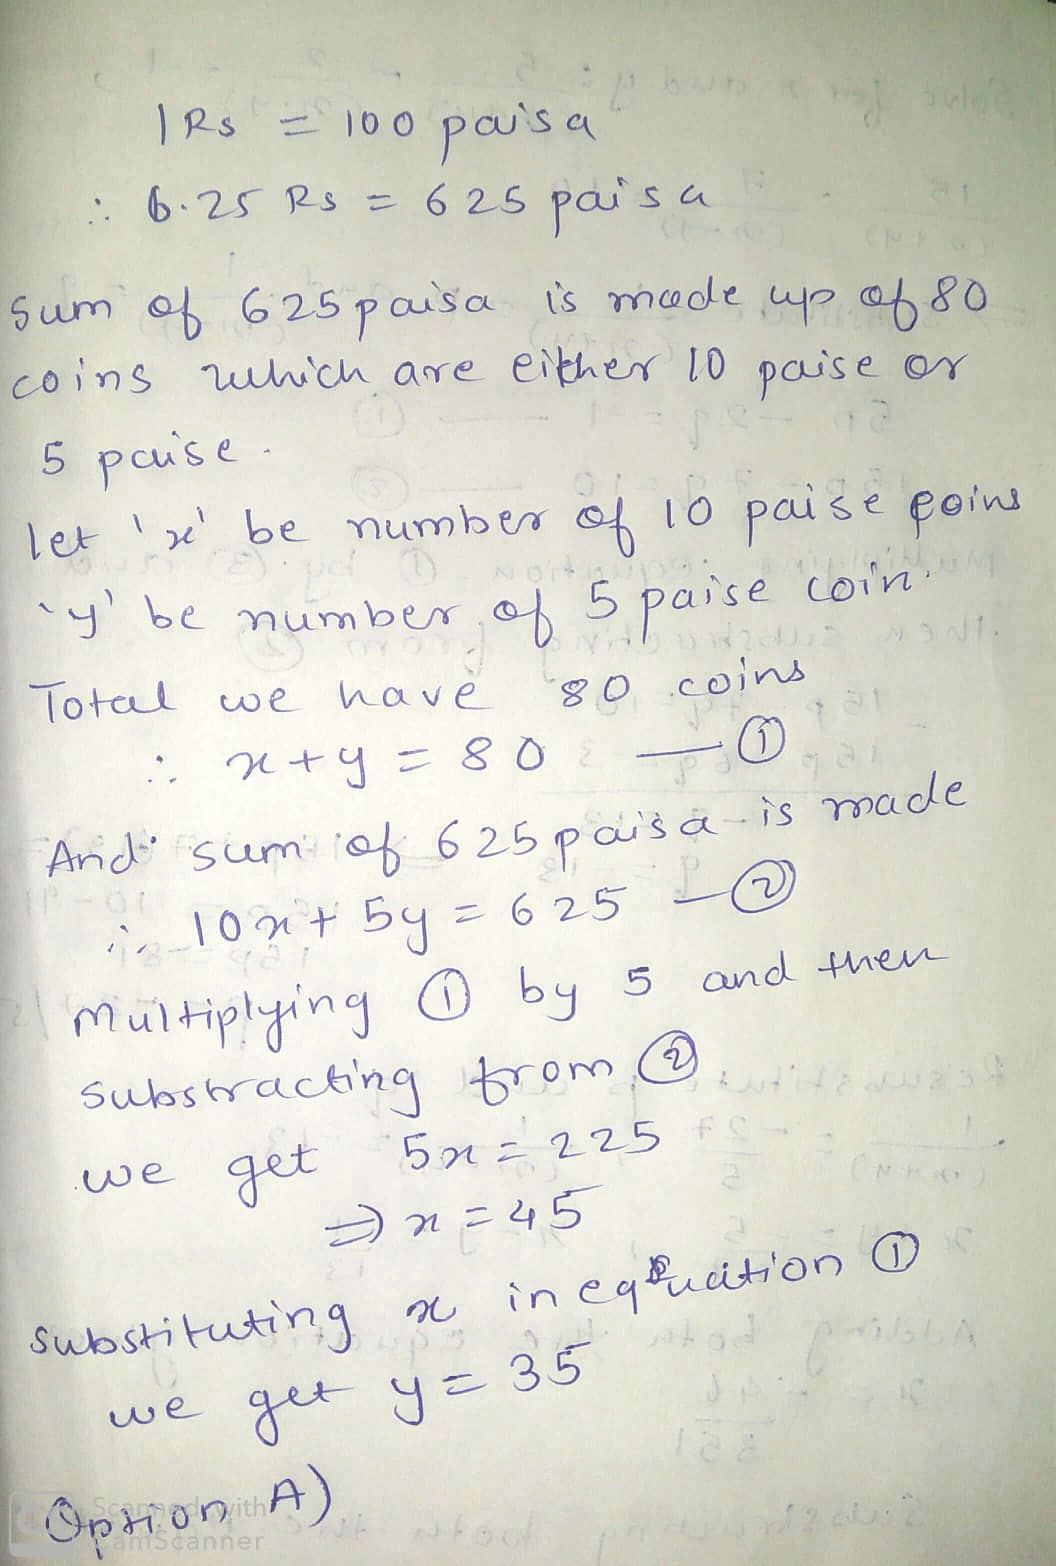 1 Rs = 100 paisa
∴ 6.25 Rs = 625 paisa
Sum of 625 paisa is made up of 80
coins which are either 10 paise or
5 paise.
let 'x' be number of 10 paise coins
'y' be number of 5 paise coin.
Total we have 80 coins
∴ x+y = 80 — ①
And sum of 625 paisa is made
∴ 10x + 5y = 625 — ②
Multiplying ① by 5 and then
substracting from ②
we get 5x = 225
⇒ x = 45
substituting x in equation ①
we get y = 35
Option A)
Scanned with
CamScanner